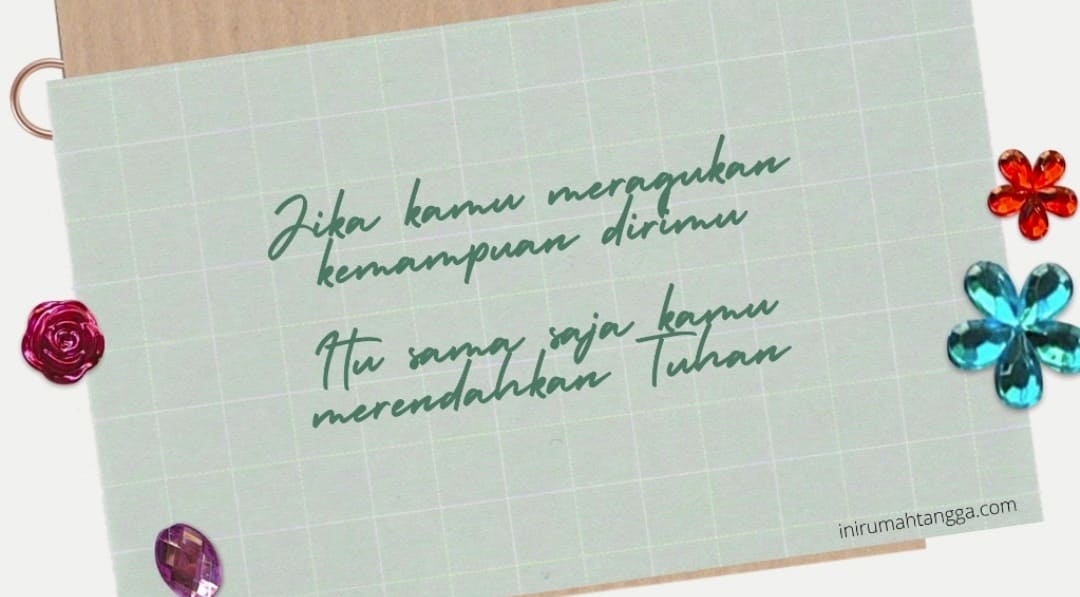 Jika kamu meragukan
kemampuan dirimu
Itu sama saja kamu
merendahkan Tuhan
inirumahtangga.com